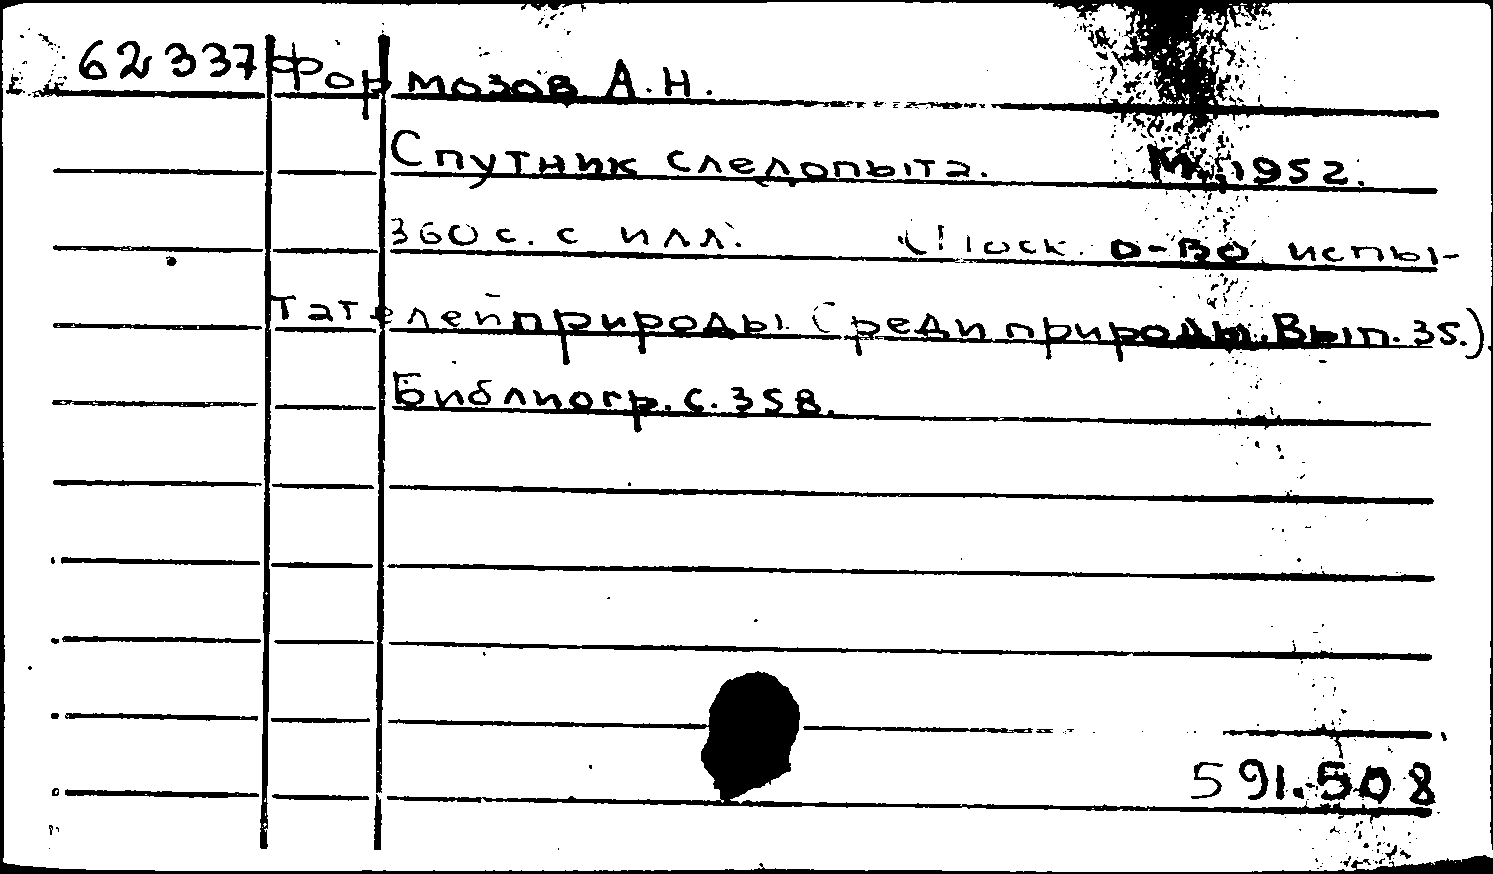 62337 Формозов А.Н.
Спутник следопыта. М., 1952.
360 с. с илл. (Моск. о-во испы-
тателей природы. Среди природы. Вып. 35.).
Библиогр. с. 358.
591.508